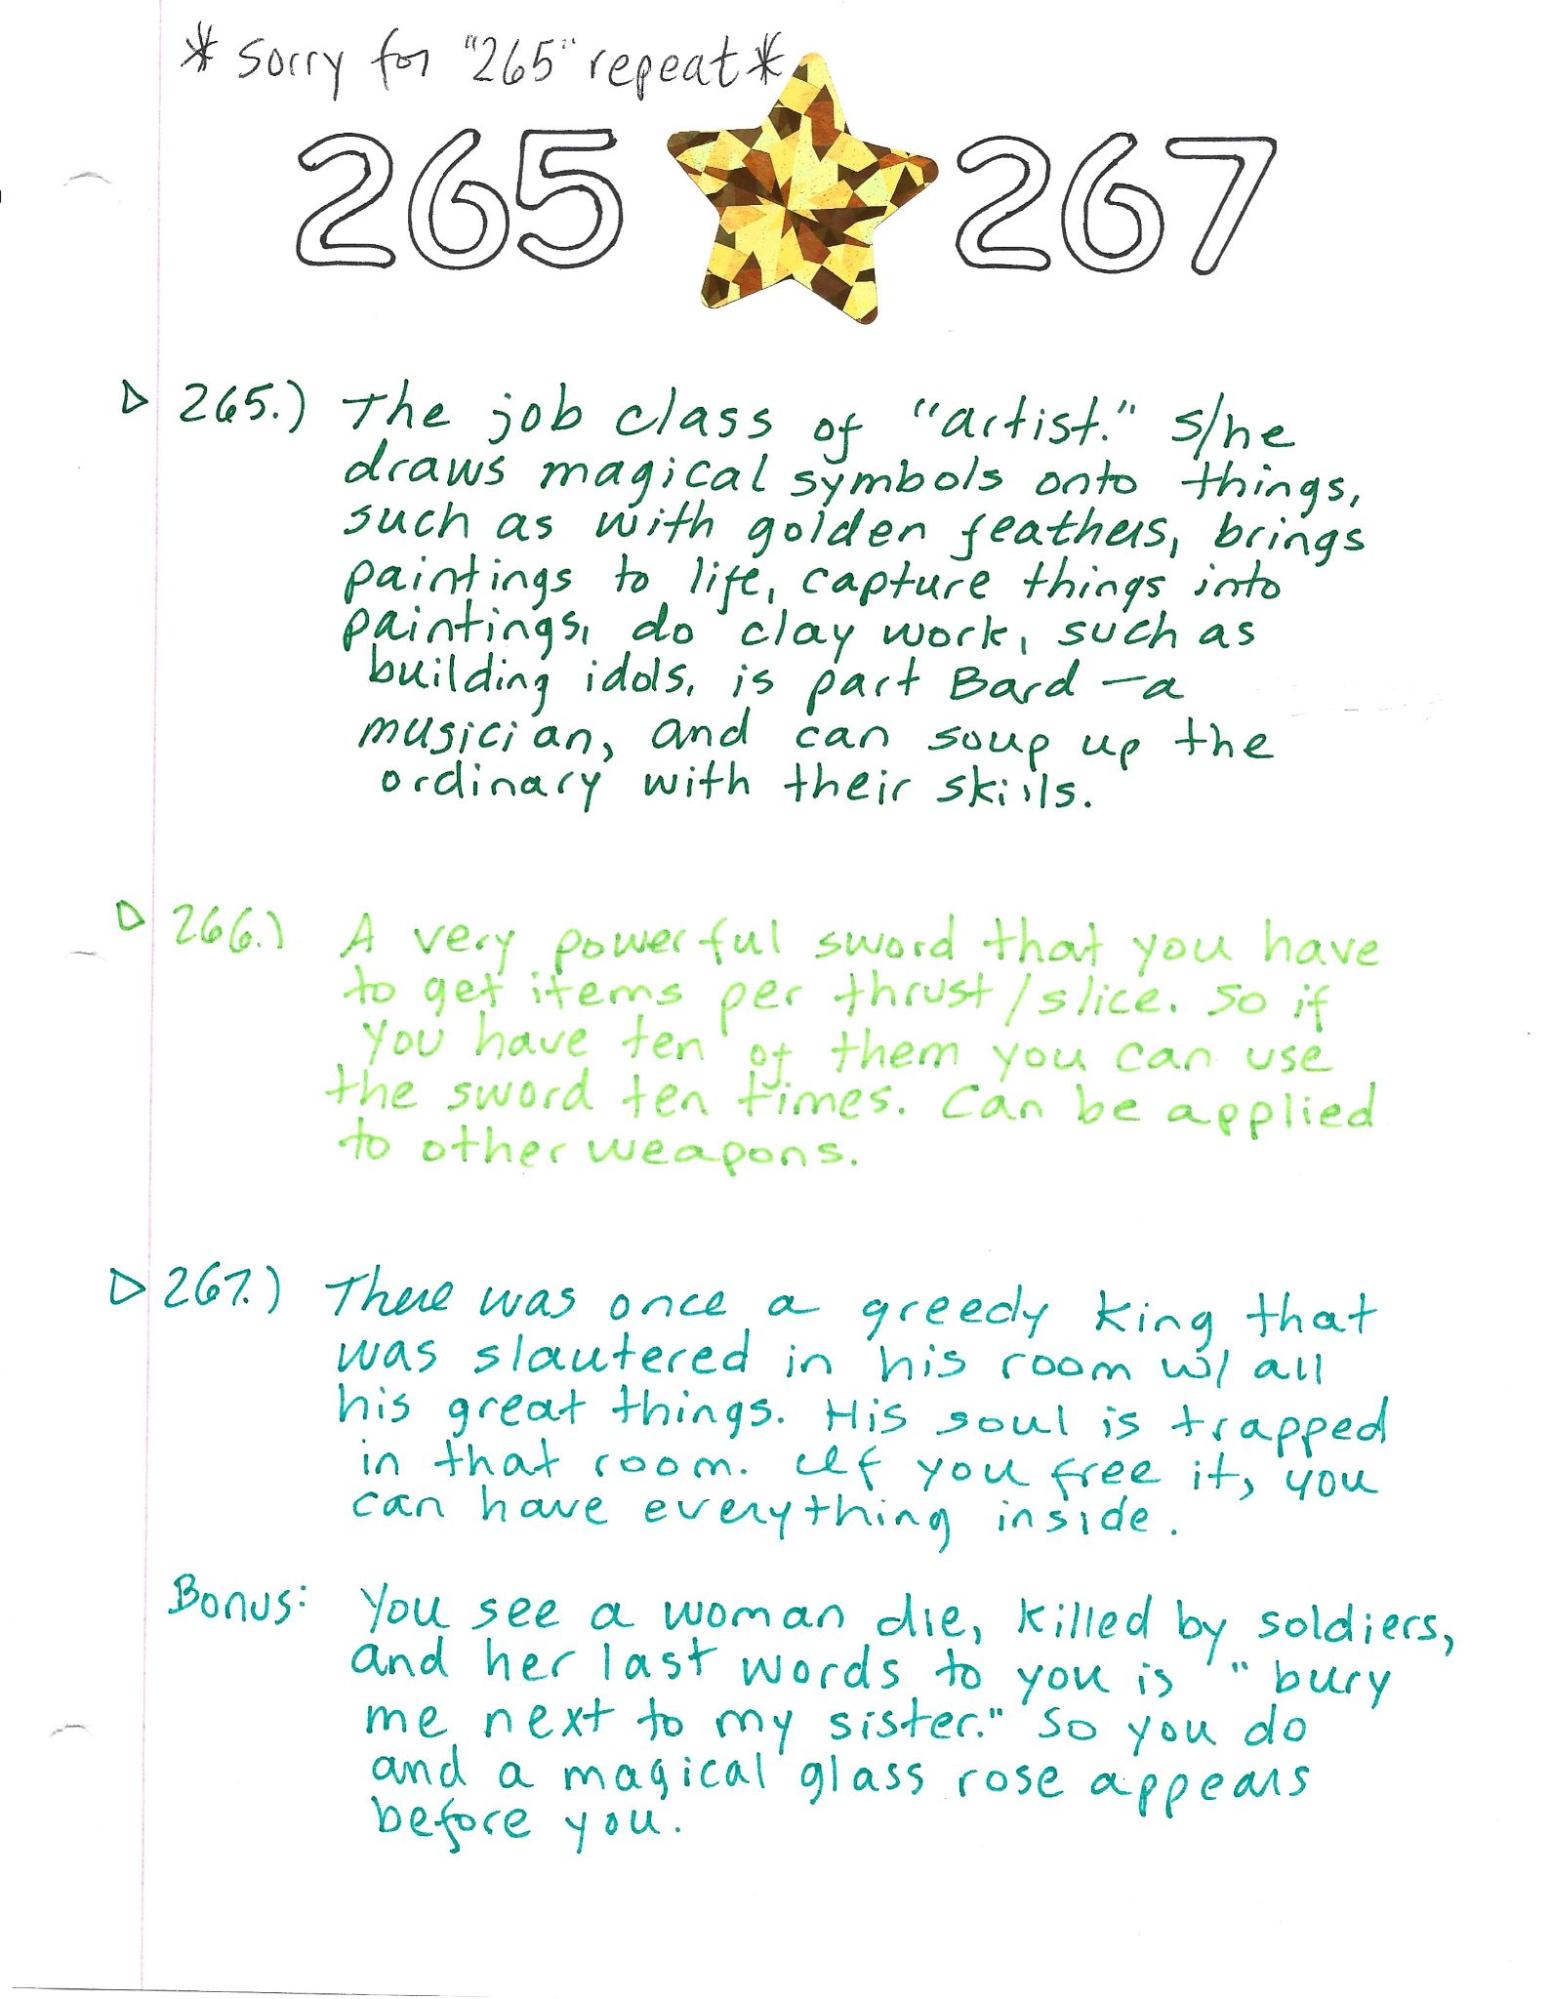 * Sorry for "265" repeat *
265 267
265.) The job class of "artist." S/he
draws magical symbols onto things,
such as with golden feathers, brings
paintings to life, capture things into
paintings, do clay work, such as
building idols, is part Bard - a
musician, and can soup up the
ordinary with their skills.
266.) A very powerful sword that you have
to get items per thrust/slice. So if
you have ten of them you can use
the sword ten times. Can be applied
to other weapons.
267.) There was once a greedy king that
was slautered in his room w/ all
his great things. His soul is trapped
in that room. If you free it, you
can have everything inside.
Bonus: You see a woman die, killed by soldiers,
and her last words to you is "bury
me next to my sister." So you do
and a magical glass rose appears
before you.